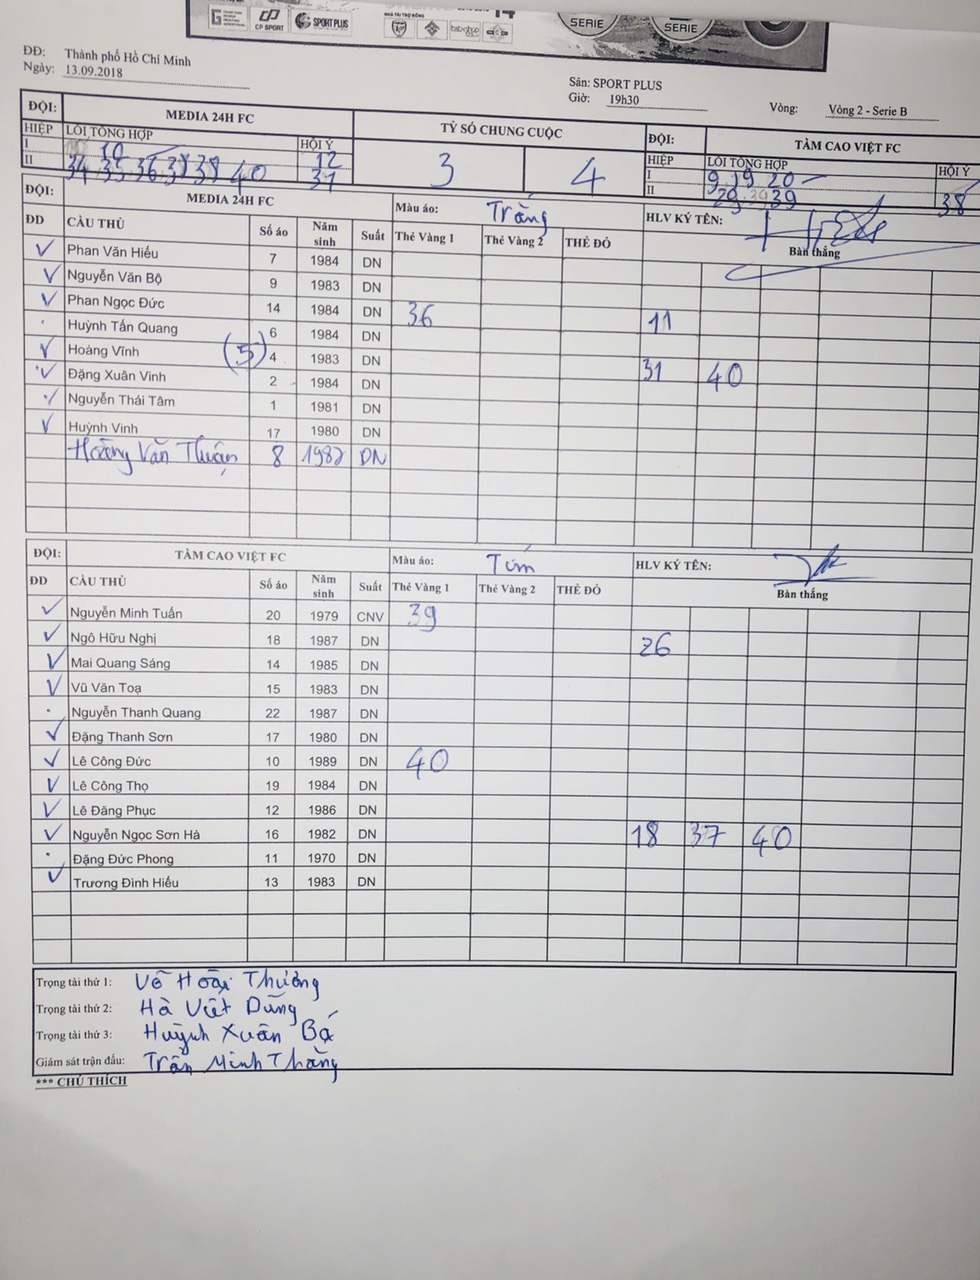 CP SPORT
SPORT PLUS
SERIE
SERIE
ĐĐ: Thành phố Hồ Chí Minh
Ngày: 13.09.2018
Sân: SPORT PLUS
Giờ: 19h30
Vòng: Vòng 2 - Serie B
ĐỘI: MEDIA 24H FC TỶ SỐ CHUNG CUỘC ĐỘI: TẦM CAO VIỆT FC
HIỆP LỖI TỔNG HỢP HỘI Ý 3 4 HIỆP LỖI TỔNG HỢP HỘI Ý
I 10 12 I 9 19 20
II 34 35 36 37 38 40 31 II 29 39 39 38
ĐỘI: MEDIA 24H FC Màu áo: Trắng HLV KÝ TÊN:
ĐD CẦU THỦ Số áo Năm sinh Suất Thẻ Vàng 1 Thẻ Vàng 2 THẺ ĐỎ Bàn thắng
Phan Văn Hiếu 7 1984 DN
Nguyễn Văn Bộ 9 1983 DN
Phan Ngọc Đức 14 1984 DN 36 11
Huỳnh Tấn Quang 6 1984 DN
Hoàng Vĩnh (5) 4 1983 DN 31 40
Đặng Xuân Vinh 2 1984 DN
Nguyễn Thái Tâm 1 1981 DN
Huỳnh Vinh 17 1980 DN
Hoàng Văn Thuận 8 1982 DN
ĐỘI: TẦM CAO VIỆT FC Màu áo: Tím HLV KÝ TÊN:
ĐD CẦU THỦ Số áo Năm sinh Suất Thẻ Vàng 1 Thẻ Vàng 2 THẺ ĐỎ Bàn thắng
Nguyễn Minh Tuấn 20 1979 CNV 39
Ngô Hữu Nghị 18 1987 DN 26
Mai Quang Sáng 14 1985 DN
Vũ Văn Toạ 15 1983 DN
Nguyễn Thanh Quang 22 1987 DN
Đặng Thanh Sơn 17 1980 DN
Lê Công Đức 10 1989 DN 40
Lê Công Thọ 19 1984 DN
Lê Đăng Phục 12 1986 DN
Nguyễn Ngọc Sơn Hà 16 1982 DN 18 37 40
Đặng Đức Phong 11 1970 DN
Trương Đình Hiếu 13 1983 DN
Trọng tài thứ 1: Võ Hoài Thương
Trọng tài thứ 2: Hà Việt Dũng
Trọng tài thứ 3: Huỳnh Xuân Bá
Giám sát trận đấu: Trần Minh Thắng
*** CHÚ THÍCH